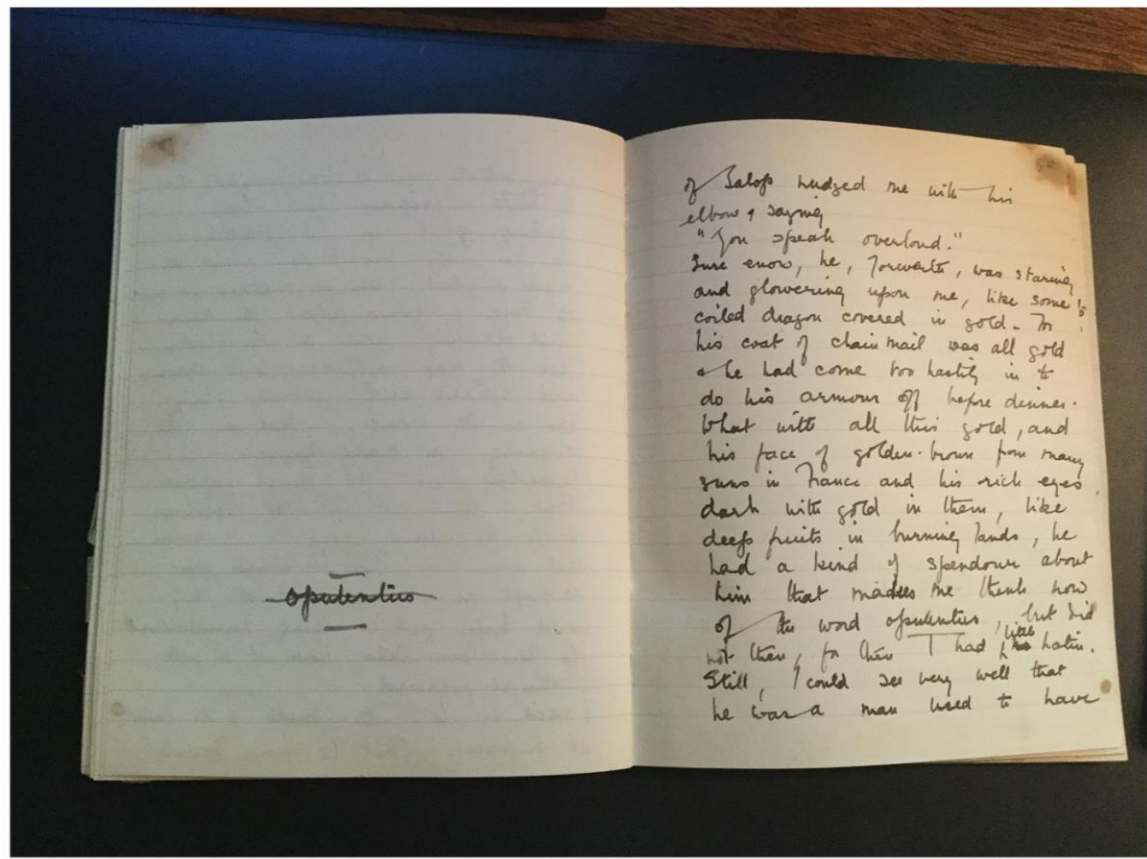 opulentius
of Salop nudged me with his
elbow & saying
"You speak overloud."
Sure enow, he, Jorwerth, was staring
and glowering upon me, like some
coiled dragon covered in gold. For
his coat of chain mail was all gold
& he had come too hastily in to
do his armour off before dinner.
What with all this gold, and
his face of golden-brown from many
suns in France and his rich eyes
dark with gold in them, like
deep fruits in burning lands, he
had a kind of spendour about
him that made me think now
of the word opulentius, but did
not then, for then I had little Latin.
Still, I could see very well that
he was a man used to have